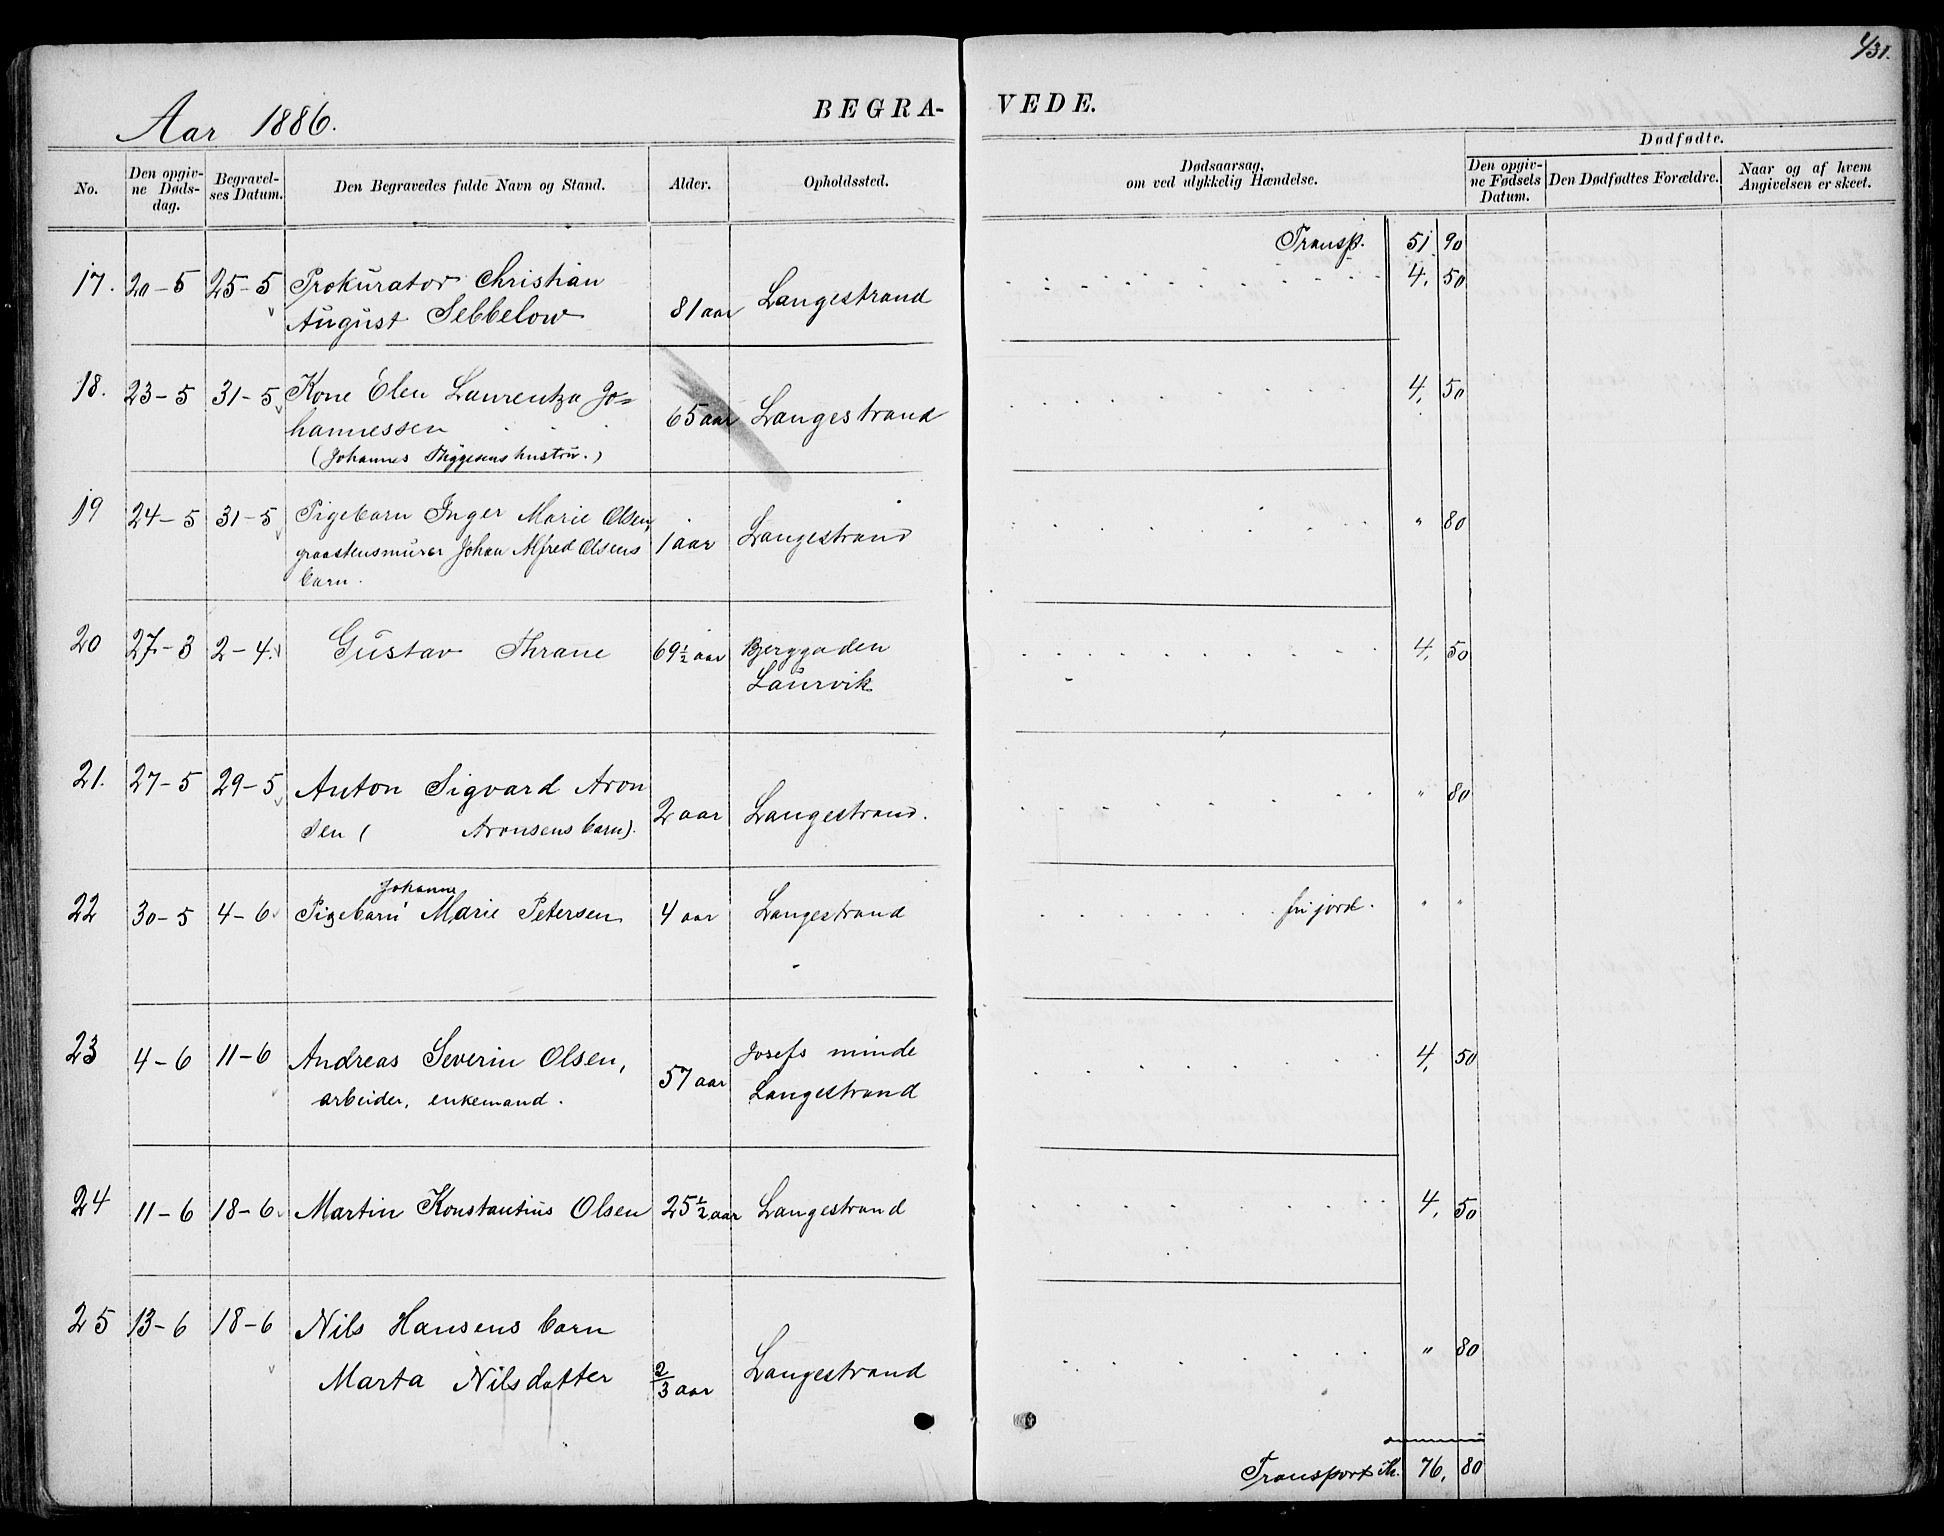 131.
Aar 1886.
BEGRA-
VEDE.
No.
Den opgiv-
ne Døds-
dag.
Begravel-
ses Datum.
Den Begravedes fulde Navn og Stand.
Alder.
Opholdssted.
Dødsaarsag,
om ved ulykkelig Hændelse.
Dødfødte.
Den opgiv-
ne Fødsels
Datum.
Den Dødfødtes Forældre.
Naar og af hvem
Angivelsen er skeet.
Transp. 51 90
17. 20-5 25-5 Prokurator Christian
August Sebbelow 81 aar Langestrand 4, 50
18. 23-5 31-5 Kone Elen Laurentza Jo=
hannessen 65 aar Langestrand 4, 50
(Johannes Thygesens hustru.)
19 24-5 31-5 Pigebarn Inger Marie Olsen,
graastensmurer Johan Alfred Olsens 1 aar Langestrand " 80
barn.
20 27-3 2-4 Gustav Thrane 69 1/2 aar Bjerggaden 4, 50
Laurvik
21. 27-5 29-5 Anton Sigvard Aron
sen ( Aronsens barn). 2 aar Langestrand. " 80
Johanne
22 30-5 4-6 Pigebarn Marie Petersen 4 aar Langestrand fri jord. " "
23 4-6 11-6 Andreas Severin Olsen, 57 aar Josefs minde 4, 50
arbeider, enkemand. Langestrand
24 11-6 18-6 Martin Konstantius Olsen 25 1/2 aar Langestrand 4, 50
25 13-6 18-6 Nils Hansens barn
Marta Nilsdatter 2/3 aar Langestrand " 80
Transport Kr. 76, 80